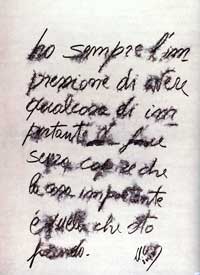 ho sempre l'im
pressione di avere
qualcosa di im
portante da fare
senza capire che
la cosa importante
è quella che sto
facendo.